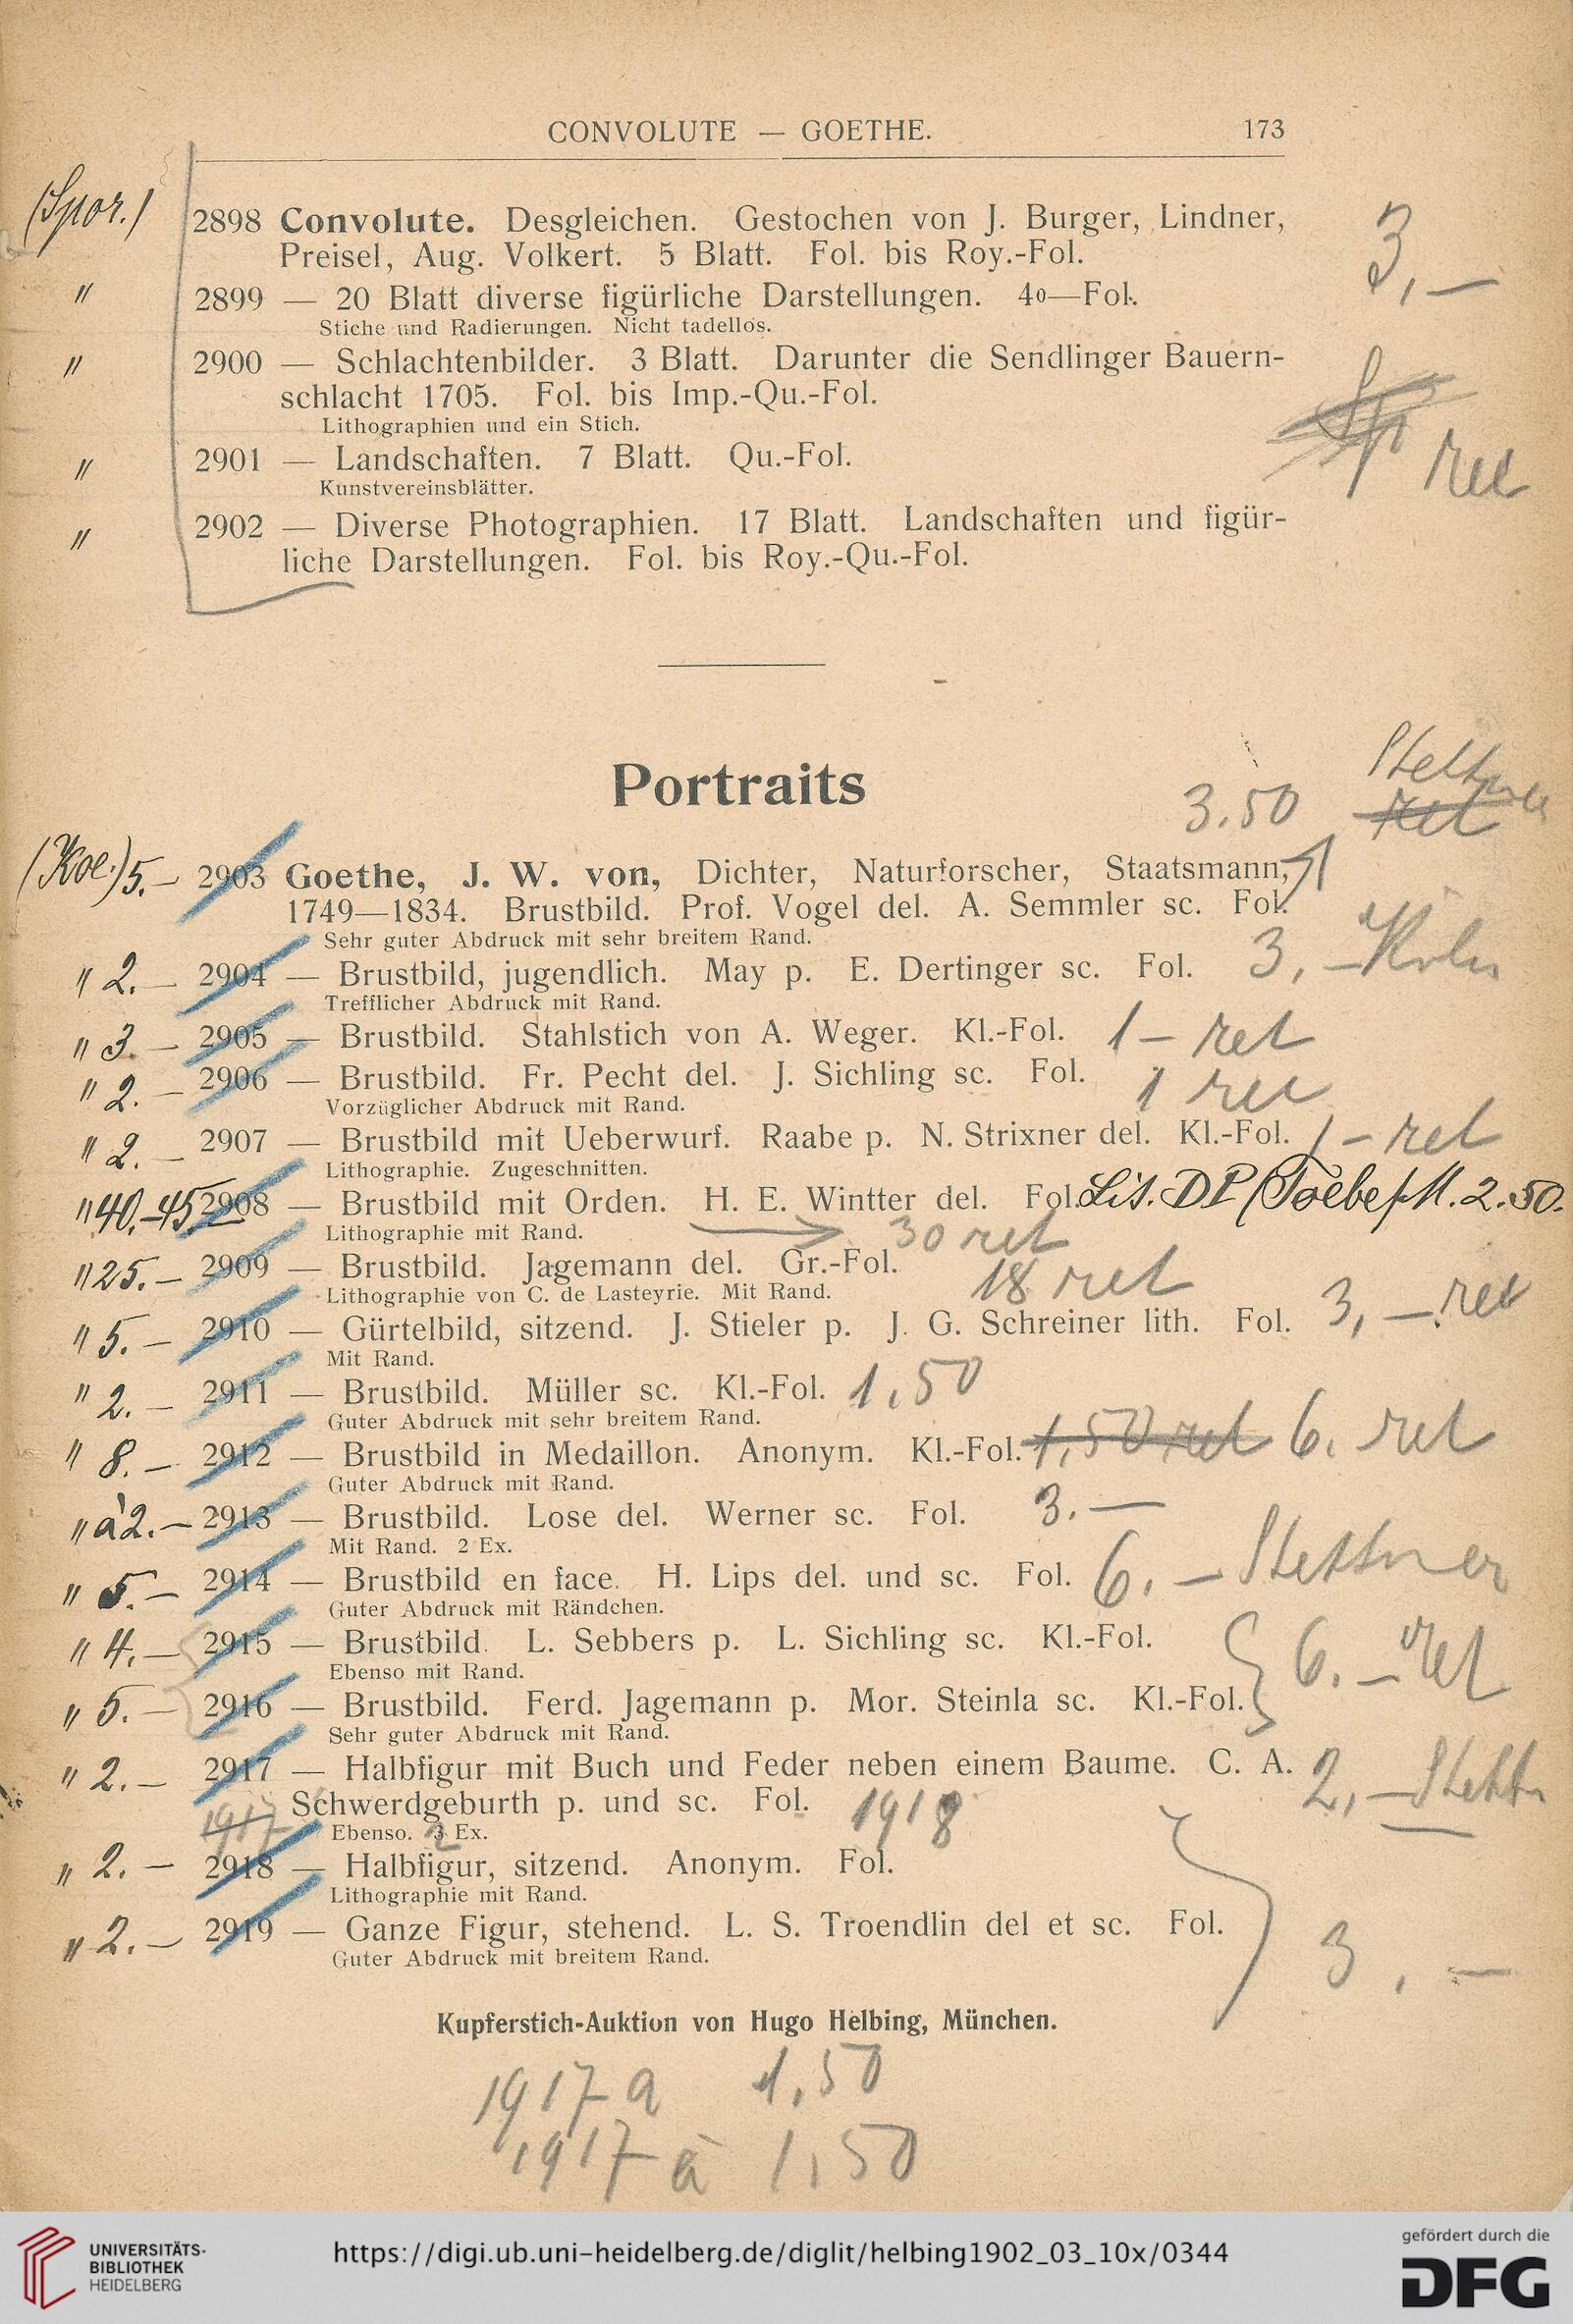 CONVOLUTE — GOETHE. 173
(Spor.) 2898 Convolute. Desgleichen. Gestochen von J. Burger, Lindner,
Preisel, Aug. Volkert. 5 Blatt. Fol. bis Roy.-Fol. 3,—
" 2899 — 20 Blatt diverse figürliche Darstellungen. 4o—Fol.
Stiche und Radierungen. Nicht tadellos.
" 2900 — Schlachtenbilder. 3 Blatt. Darunter die Sendlinger Bauern-
schlacht 1705. Fol. bis Imp.-Qu.-Fol.
Lithographien und ein Stich.
" 2901 — Landschaften. 7 Blatt. Qu.-Fol. ret
Kunstvereinsblätter.
" 2902 — Diverse Photographien. 17 Blatt. Landschaften und figür-
liche Darstellungen. Fol. bis Roy.-Qu.-Fol.
Portraits
3.50 ret
(Koe.) 5.— 2903 Goethe, J. W. von, Dichter, Naturforscher, Staatsmann,
1749—1834. Brustbild. Prof. Vogel del. A. Semmler sc. Fol.
Sehr guter Abdruck mit sehr breitem Rand.
" 2.— 2904 — Brustbild, jugendlich. May p. E. Dertinger sc. Fol. 3,— Köln
Trefflicher Abdruck mit Rand.
" 3.— 2905 — Brustbild. Stahlstich von A. Weger. Kl.-Fol. 1— ret
" 2.— 2906 — Brustbild. Fr. Pecht del. J. Sichling sc. Fol. 1 ret
Vorzüglicher Abdruck mit Rand.
" 2.— 2907 — Brustbild mit Ueberwurf. Raabe p. N. Strixner del. Kl.-Fol. 1— ret
Lithographie. Zugeschnitten.
" 40.—45 2908 — Brustbild mit Orden. H. E. Wintter del. Fol.
Lithographie mit Rand. 30 ret
" 25.— 2909 — Brustbild. Jagemann del. Gr.-Fol. 18 ret
Lithographie von C. de Lasteyrie. Mit Rand.
" 5.— 2910 — Gürtelbild, sitzend. J. Stieler p. J. G. Schreiner lith. Fol. 3,— ret
Mit Rand.
" 2.— 2911 — Brustbild. Müller sc. Kl.-Fol. 1,50
Guter Abdruck mit sehr breitem Rand.
" 8.— 2912 — Brustbild in Medaillon. Anonym. Kl.-Fol. 1,50 ret 6. ret
Guter Abdruck mit Rand.
" à 2.— 2913 — Brustbild. Lose del. Werner sc. Fol. 3.—
Mit Rand. 2 Ex.
" 5.— 2914 — Brustbild en face. H. Lips del. und sc. Fol. 6.— Stettner
Guter Abdruck mit Rändchen.
" 4.— 2915 — Brustbild. L. Sebbers p. L. Sichling sc. Kl.-Fol.
Ebenso mit Rand. 6.— ret
" 5.— 2916 — Brustbild. Ferd. Jagemann p. Mor. Steinla sc. Kl.-Fol.
Sehr guter Abdruck mit Rand.
" 2.— 2917 — Halbfigur mit Buch und Feder neben einem Baume. C. A. 2,—
1917 Schwerdgeburth p. und sc. Fol. 1918
Ebenso. 3 Ex.
" 2.— 2918 — Halbfigur, sitzend. Anonym. Fol.
Lithographie mit Rand.
" 2.— 2919 — Ganze Figur, stehend. L. S. Troendlin del et sc. Fol. 3.—
Guter Abdruck mit breitem Rand.
Kupferstich-Auktion von Hugo Helbing, München.
1917 a 1,50
1917 à 1,50
UNIVERSITÄTS-
BIBLIOTHEK
HEIDELBERG
https://digi.ub.uni-heidelberg.de/diglit/helbing1902_03_10x/0344
gefördert durch die
DFG